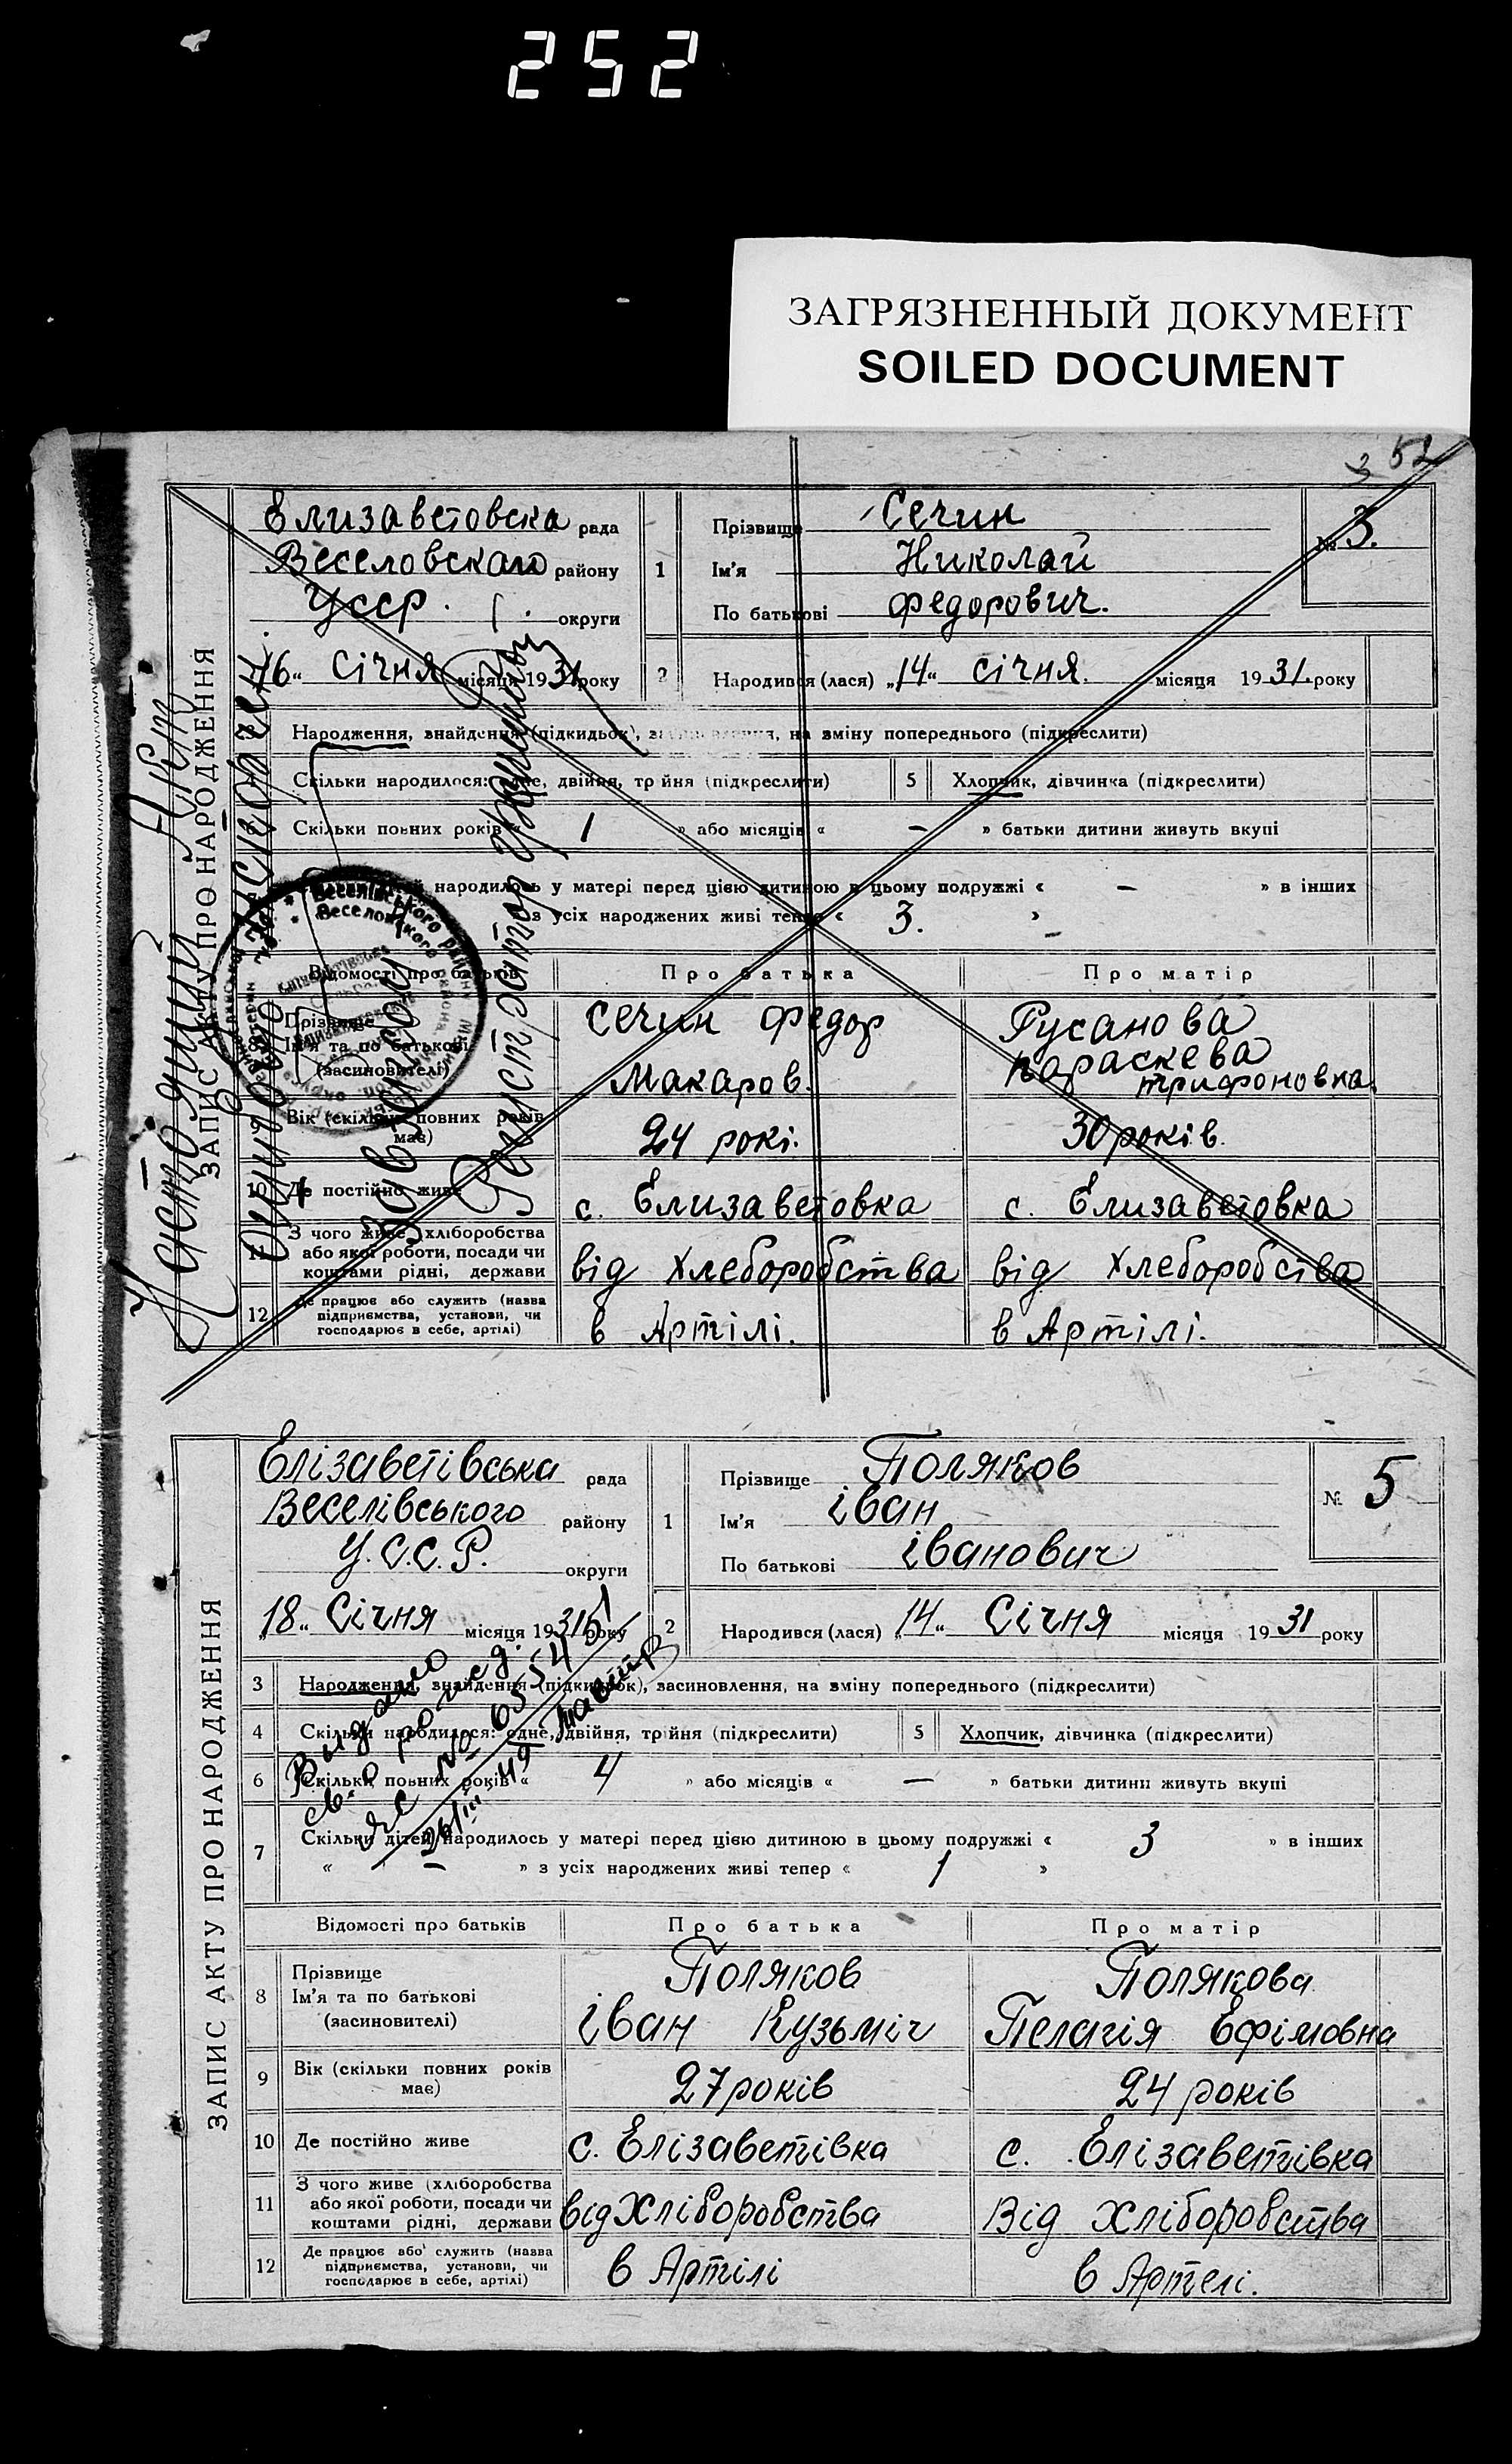 252
ЗАГРЯЗНЕННЫЙ ДОКУМЕНТ
SOILED DOCUMENT
3 52
ЗАПИС АКТУ ПРО НАРОДЖЕННЯ
Елизаветовска рада
Веселовскаго району
Усср. округи
16 січня місяця 1931 року
1 Прізвище Сечин
Ім'я Николай
По батькові Федорович.
№ 3.
2 Народився (лася) „14“ січня. місяця 1931. року
Народження, знайдення (підкидьок), на зміну попереднього (підкреслити)
Скільки народилося: одне, двійня, тройня (підкреслити) 5 Хлопчик, дівчинка (підкреслити)
Скільки повних років « 1 » або місяців « — » батьки дитини живуть вкупі
народилось у матері перед цією дитиною в цьому подружжі « — » в інших
з усіх народжених живі тепер « 3. »
Відомості про батьків Про батька Про матір
8 Прізвище
Ім'я та по батькові
(засновителі)
Сечин Федор
Макаров.
Русанова
Параскева
Трифоновка.
Вік (скільки повних років має) 24 рокі. 30 років.
10 Де постійно живе с. Елизаветовка с. Елизаветовка
11 З чого живе (хліборобства
або якої роботи, посади чи
коштами рідні, держави
від Хлеборобства від Хлеборобства
12 Де працює або служить (назва
підприємства, установи, чи
господарює в себе, артілі)
в Артілі. в Артілі.
Настоящий Акт
ошибочно
Веселівського району
Веселовского района
ЗАПИС АКТУ ПРО НАРОДЖЕННЯ
Елізаветівська рада
Веселівського району
У.С.С.Р. округи
„18“ Січня місяця 1931 року
1 Прізвище Поляков
Ім'я іван
По батькові іванович
№ 5
2 Народився (лася) „14“ Січня місяця 1931 року
3 Народження, знайдення (підкидьок), засиновлення, на зміну попереднього (підкреслити)
4 Скільки народилося: одне, двійня, тройня (підкреслити) 5 Хлопчик, дівчинка (підкреслити)
6 Скільки повних років « 4 » або місяців « — » батьки дитини живуть вкупі
7 Скільки дітей народилось у матері перед цією дитиною в цьому подружжі « 3 » в інших
« — » з усіх народжених живі тепер « 1 »
Выдано
св. о рожд.
26/III 49
Відомості про батьків Про батька Про матір
8 Прізвище
Ім'я та по батькові
(засиновителі)
Поляков
іван Кузьміч
Полякова
Пелагія Ефімовна
9 Вік (скільки повних років
має)
27 років 24 років
10 Де постійно живе с. Елізаветівка с. Елізаветівка
11 З чого живе (хліборобства
або якої роботи, посади чи
коштами рідні, держави
від Хліборобства Від Хліборобства
12 Де працює або служить (назва
підприємства, установи, чи
господарює в себе, артілі)
в Артілі в Артелі.